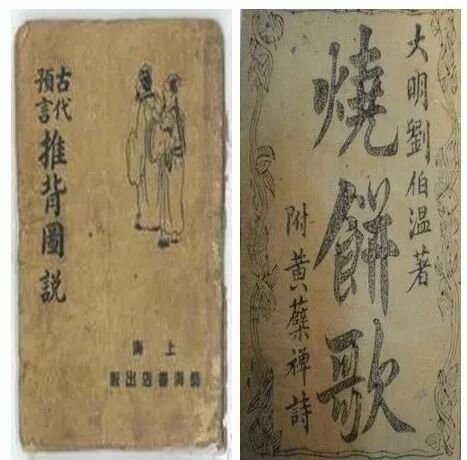 古代
預言
推背圖説
上海
藝海書店出版
大明劉伯温著
燒餅歌
附黃蘗禪詩